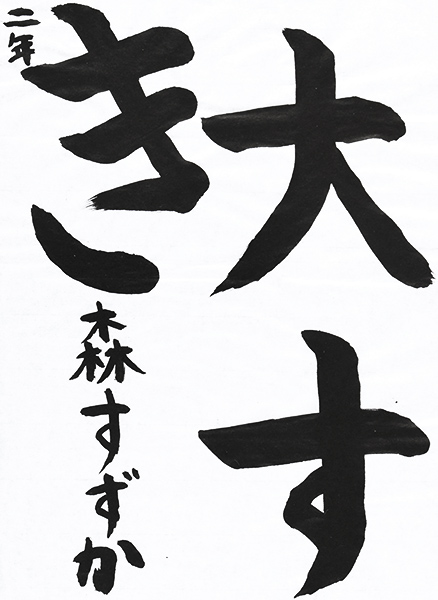 大す
き
二年
森すずか